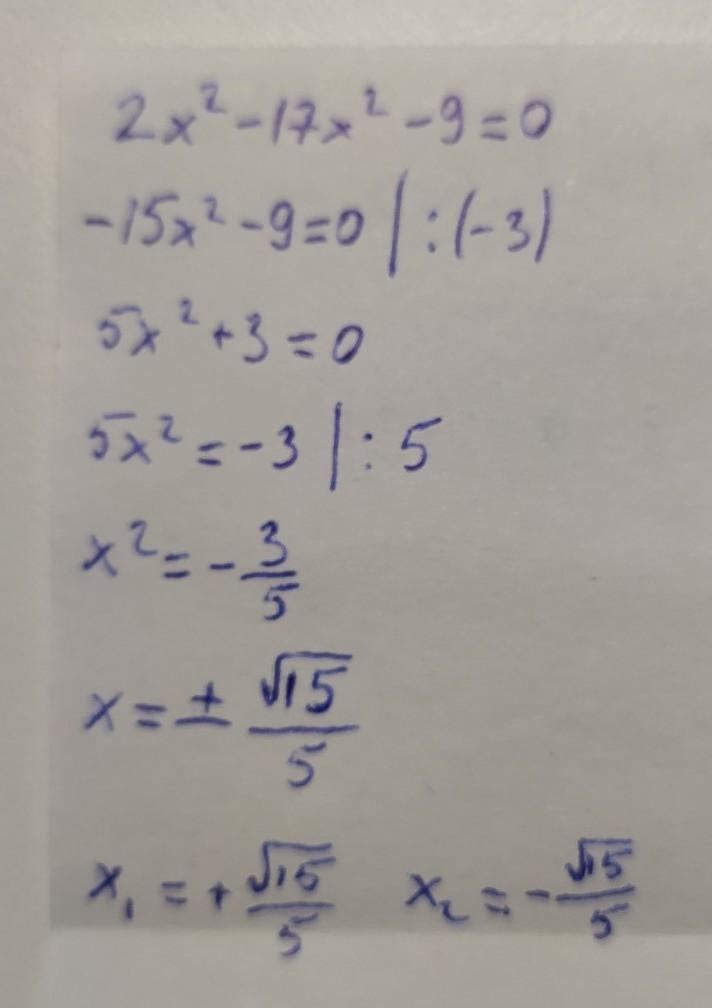 2x² - 17x² - 9 = 0
-15x² - 9 = 0 | : (-3)
5x² + 3 = 0
5x² = -3 | : 5
x² = - 3/5
x = ± √15/5
x₁ = + √15/5 x₂ = - √15/5